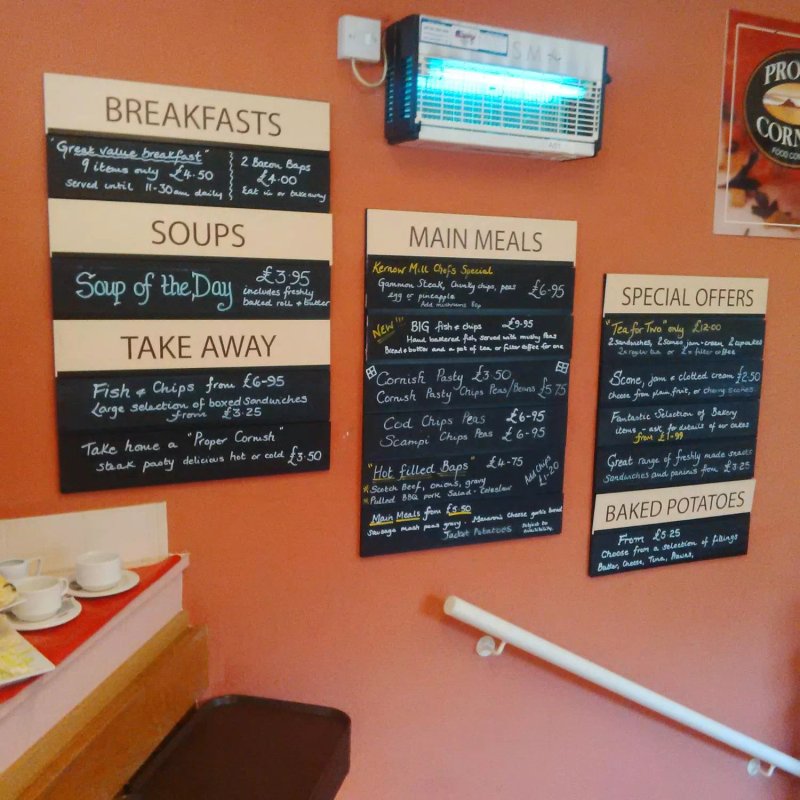 BREAKFASTS
"Great value breakfast"
9 items only £4.50
Served until 11-30am daily
2 Bacon Baps
£4.00
Eat in or takeaway
SOUPS
Soup of the Day
£3.95
includes freshly
baked roll & butter
TAKE AWAY
Fish & Chips from £6-95
Large selection of boxed sandwiches
from £3.25
Take home a "Proper Cornish"
steak pasty delicious hot or cold £3.50
MAIN MEALS
Kernow Mill Chefs Special
Gammon Steak, Chunky chips, peas
egg or pineapple
£6-95
Add mushrooms 80p
NEW"
BIG fish & chips £9-95
Hand battered fish served with mushy Peas
Bread & butter and a pot of tea or filter coffee for one
Cornish Pasty £3.50
Cornish Pasty Chips Peas/Beans £5.75
Cod Chips Peas £6-95
Scampi Chips Peas £6-95
"Hot filled Baps" £4-75
Scotch Beef, onions, gravy
Pulled BBQ pork Salad - Coleslaw
Add Chips
£1-20
Main Meals from £5.50
Sausage mash peas gravy. Macaroni cheese garlic bread
Jacket Potatoes
Subject to
availability
SPECIAL OFFERS
"Tea for Two" only £12.00
2 sandwiches, 2 scones jam & cream, 2 cupcakes
2 x regular tea or 2 x filter coffee
Scone, jam & clotted cream £2.50
Choose from plain, fruit, or cherry scones
Fantastic Selection of Bakery
items - ask for details of our cakes
from £1-99
Great range of freshly made snacks
Sandwiches and paninis from £3.25
BAKED POTATOES
From £5.25
Choose from a selection of fillings
Butter, Cheese, Tuna, Prawns,
PRO
CORN
FOOD CO